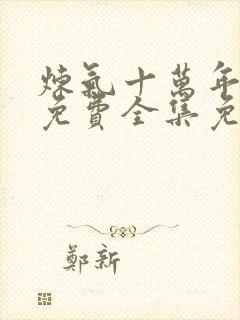 煉氣十萬年
免費全集免
鄭新